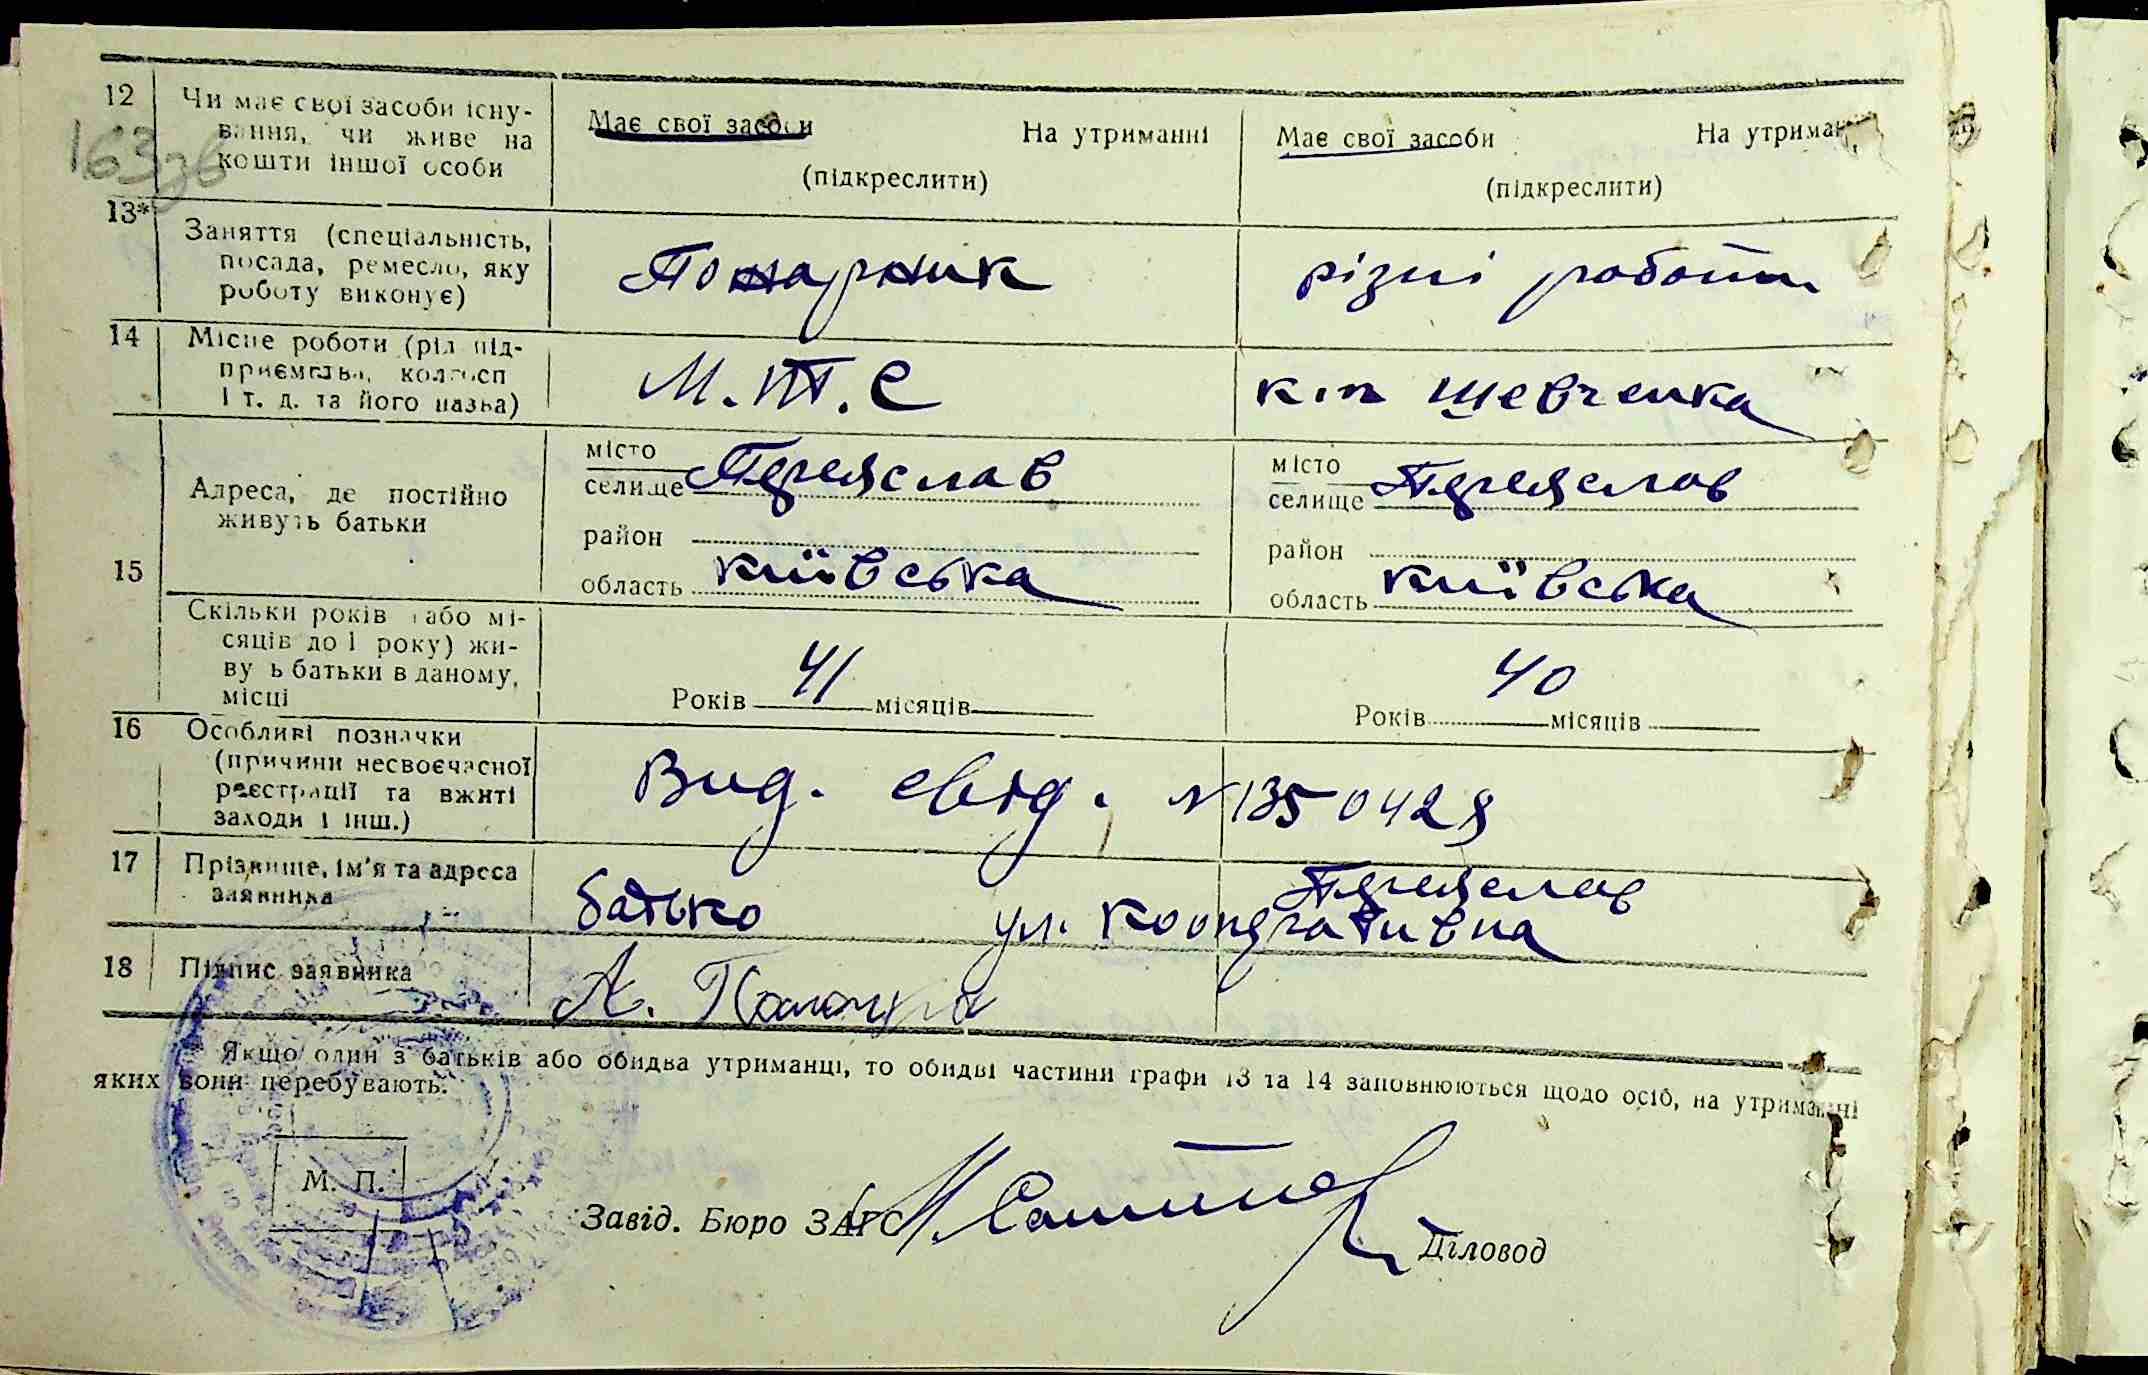 12 Чи має свої засоби існу- Має свої засоби На утриманні Має свої засоби На утриман
вання, чи живе на
кошти іншої особи (підкреслити) (підкреслити)
163зв
13* Заняття (спеціальність,
посада, ремесло, яку Пожарник різні роботи
роботу виконує)
14 Місце роботи (рід під-
приємства, колгосп М.Т.С к-п Шевченка
і т. д. та його назва)
місто місто
Адреса, де постійно селище Переяслав селище Переяслав
живуть батьки
район район
15 область Київська область Київська
Скільки років (або мі-
сяців до 1 року) жи-
вуть батьки в даному
місці Років 41 місяців Років 40 місяців
16 Особливі позначки
(причини несвоєчасної Вид. свід. N 1350428
реєстрації та вжиті
заходи і інш.)
17 Прізвище, ім'я та адреса Переяслав
заявника батько ул. Кооперативна
18 Підпис заявника А.
Якщо один з батьків або обидва утриманці, то обидві частини графи 13 та 14 заповнюються щодо осіб, на утриманні
яких вони перебувають.
М. П.
Завід. Бюро ЗАГС Діловод